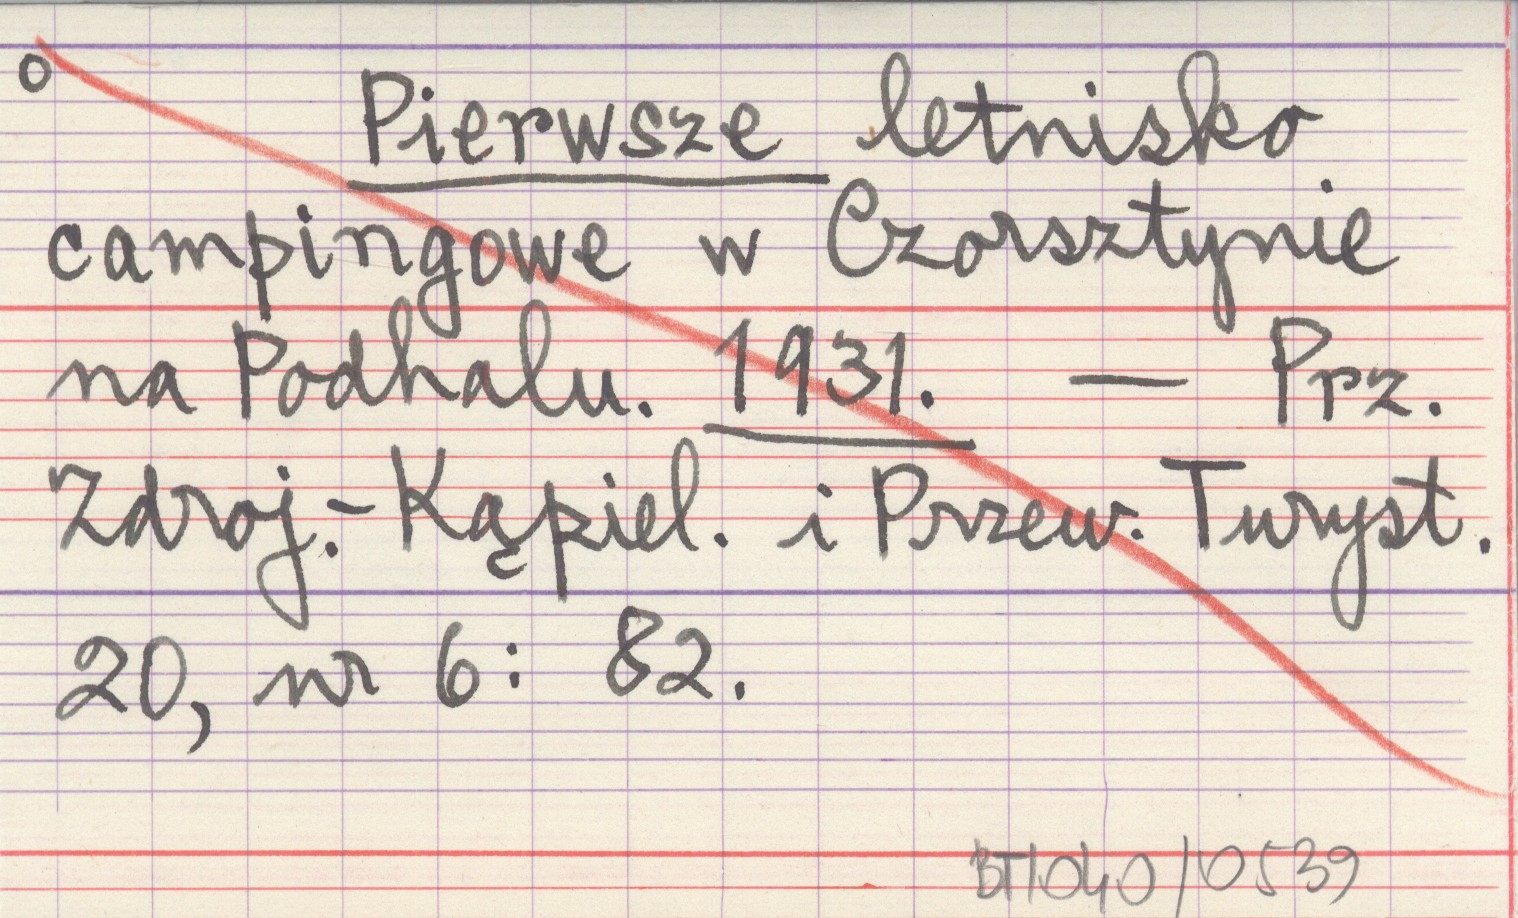 o Pierwsze letnisko
campingowe w Czorsztynie
na Podhalu. 1931. — Prz.
Zdroj.-Kąpiel. i Przew. Turyst.
20, nr 6: 82.
BT/040/0539